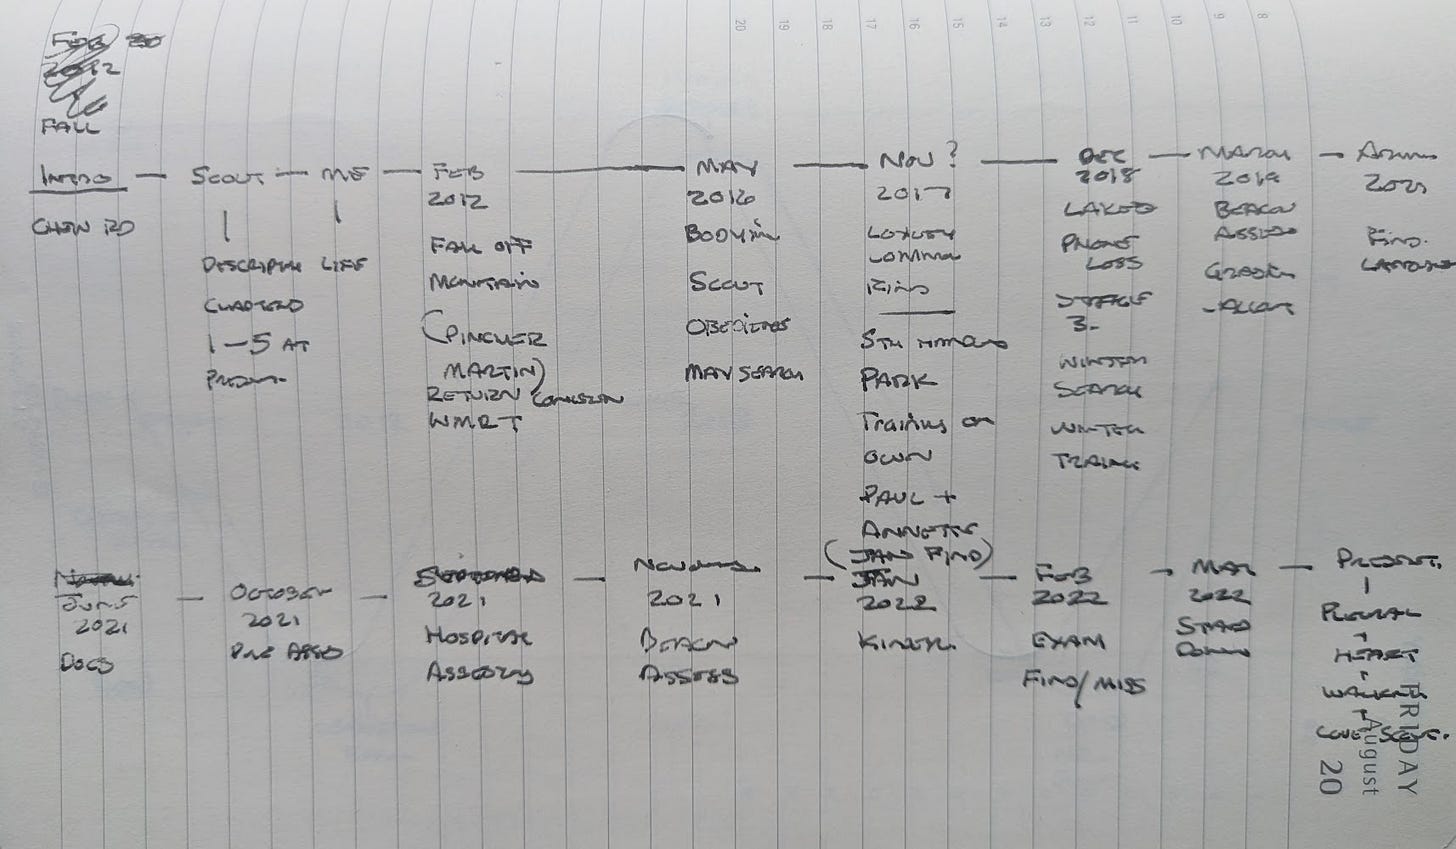 20 19 18 17 16 15 14 13 12 11 10 9 8
FEB 20
2012
FALL
INTRO — SCOUT — ME — FEB — MAY — NOV? — DEC — MARCH —
2012 2016 2017 2018 2019 2021
CHEW RD
DESCRIPTION LIFE
1-5 AT
FALL OFF
MOUNTAIN
(PINCHER
MARTIN)
RETURN CONCLUSION
WMRT
SCOUT
OBEDIENCE
MAN SEARCH
LONGLEY
COMMON
FIND
PARK
Training on
OWN
PAUL +
ANNETTE
(JAN FIND)
LAKES
PHONE
LOSS
STAGE
3-
WINTER
SEARCH
WINTER
TRAINING
BEACON
ASSESS
FIND.
JUNE — OCTOBER — — NOVEMBER — JAN — FEB — MAR — PRESENT.
2021 2021 2021 2021 2022 2022 2022
DOGS
PRE ASSD
HOSPITAL
BEACON
ASSESS
KINDER
EXAM
FIND/MISS
STAND
DOWN
PLEURAL
HEART
WALKING
FRIDAY
August
20